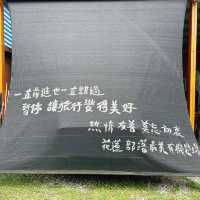 一直前進也一直錯過
暫停 讓旅行變得美好
熱情友善 莫忘初衷
花蓮部落最美有